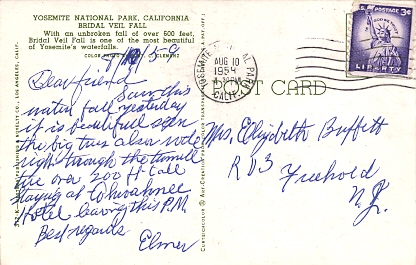 YOSEMITE NATIONAL PARK, CALIFORNIA
BRIDAL VEIL FALL
With an unbroken fall of over 600 feet,
Bridal Veil Fall is one of the most beautiful
of Yosemite's waterfalls.
Dear friend
Saw this
water fall yesterday
it is beautiful seen
the big trees also rode
right through the tunnell
tree over 200 ft tall
staying at Ahwahnee
Hotel leaving this P.M.
Best regards
Elmer
YOSEMITE NATIONAL PARK
AUG 10
1954
CALIF.
POST CARD
U.S. POSTAGE 3¢
LIBERTY
Mrs. Elizibeth Buffett
RD3
Freehold
N.J.